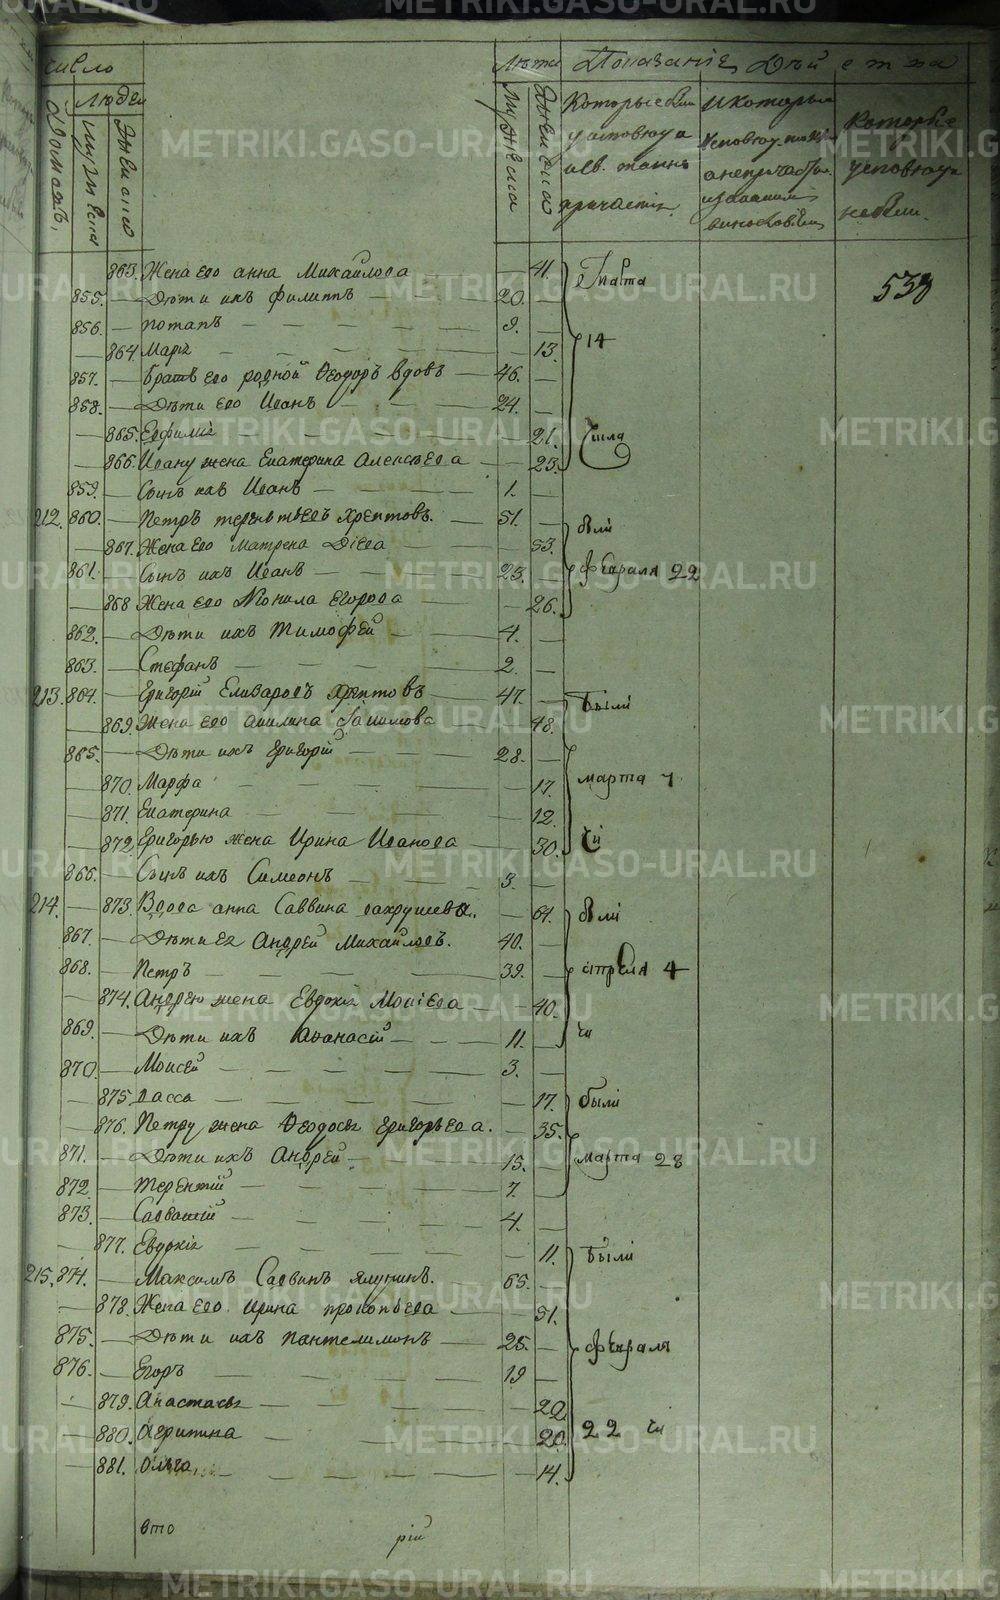 число Лѣта Показаніе Дѣйства
людей
Домовъ. мужеска женска мужеска женска
Которые были у исповѣди и св. таинъ причастія. и которые исповѣдались а не причастил.
Которые у исповѣди не были.
863. Жена его анна Михайлова 41. Марта
538
855. Дѣти ихъ филиппъ 20.
856. потапъ 9.
864. Маріа 13. 14
857. Братъ его родной Ѳеодоръ вдовъ 46.
858. Дѣти его Иванъ 24.
865. Евфиміа 21. числа
866. Ивану жена Екатерина Алексѣева 23.
859. Сынъ ихъ Иванъ 1.
212. 860. Петръ терентьевъ Хрептовъ. 51. были
867. Жена его матрена 53.
861. Сынъ ихъ Иванъ 23. февраля 22
868 Жена его Неонила Егорова 26.
862. Дѣти ихъ Тимофей 4.
863. Стефанъ 2.
213. 864. Григорій Елизаровъ хрептовъ 47. были
869. Жена его акилина 48.
865. Дѣти ихъ григорій 28.
870. Марфа 17. марта 7
871. Екатерина 12.
872. Григорью жена Ирина Иванова 30.
866. Сынъ ихъ Симеонъ 3.
214. 873. Вдова анна Саввина вахрушева. 61. были
867. Дѣти ея Андрей Михайловъ. 40.
868. Петръ 39. апреля 4
874. Андрею жена Евдокіа Мокіева 40.
869. Дѣти ихъ Аѳанасій 11. чи
870. Моисей 3.
875. васса 17. были
876. Петру жена Ѳеодосьа григорьева. 35.
871. Дѣти ихъ Андрей 15. марта 28
872. терентій 7.
873. Савватій 4.
877. Евдокіа 11. были
215. 874. Максимъ Саввинъ Ялунинъ. 65.
878. Жена его Ирина прокопьева 51.
875. Дѣти ихъ пантелимонъ 25. февраля
876. Егоръ 19
879. Анастасьа 22
880. Агрипина 20. 22 чи
881. Ольга 14.
вто рій
METRIKI.GASO-URAL.RU